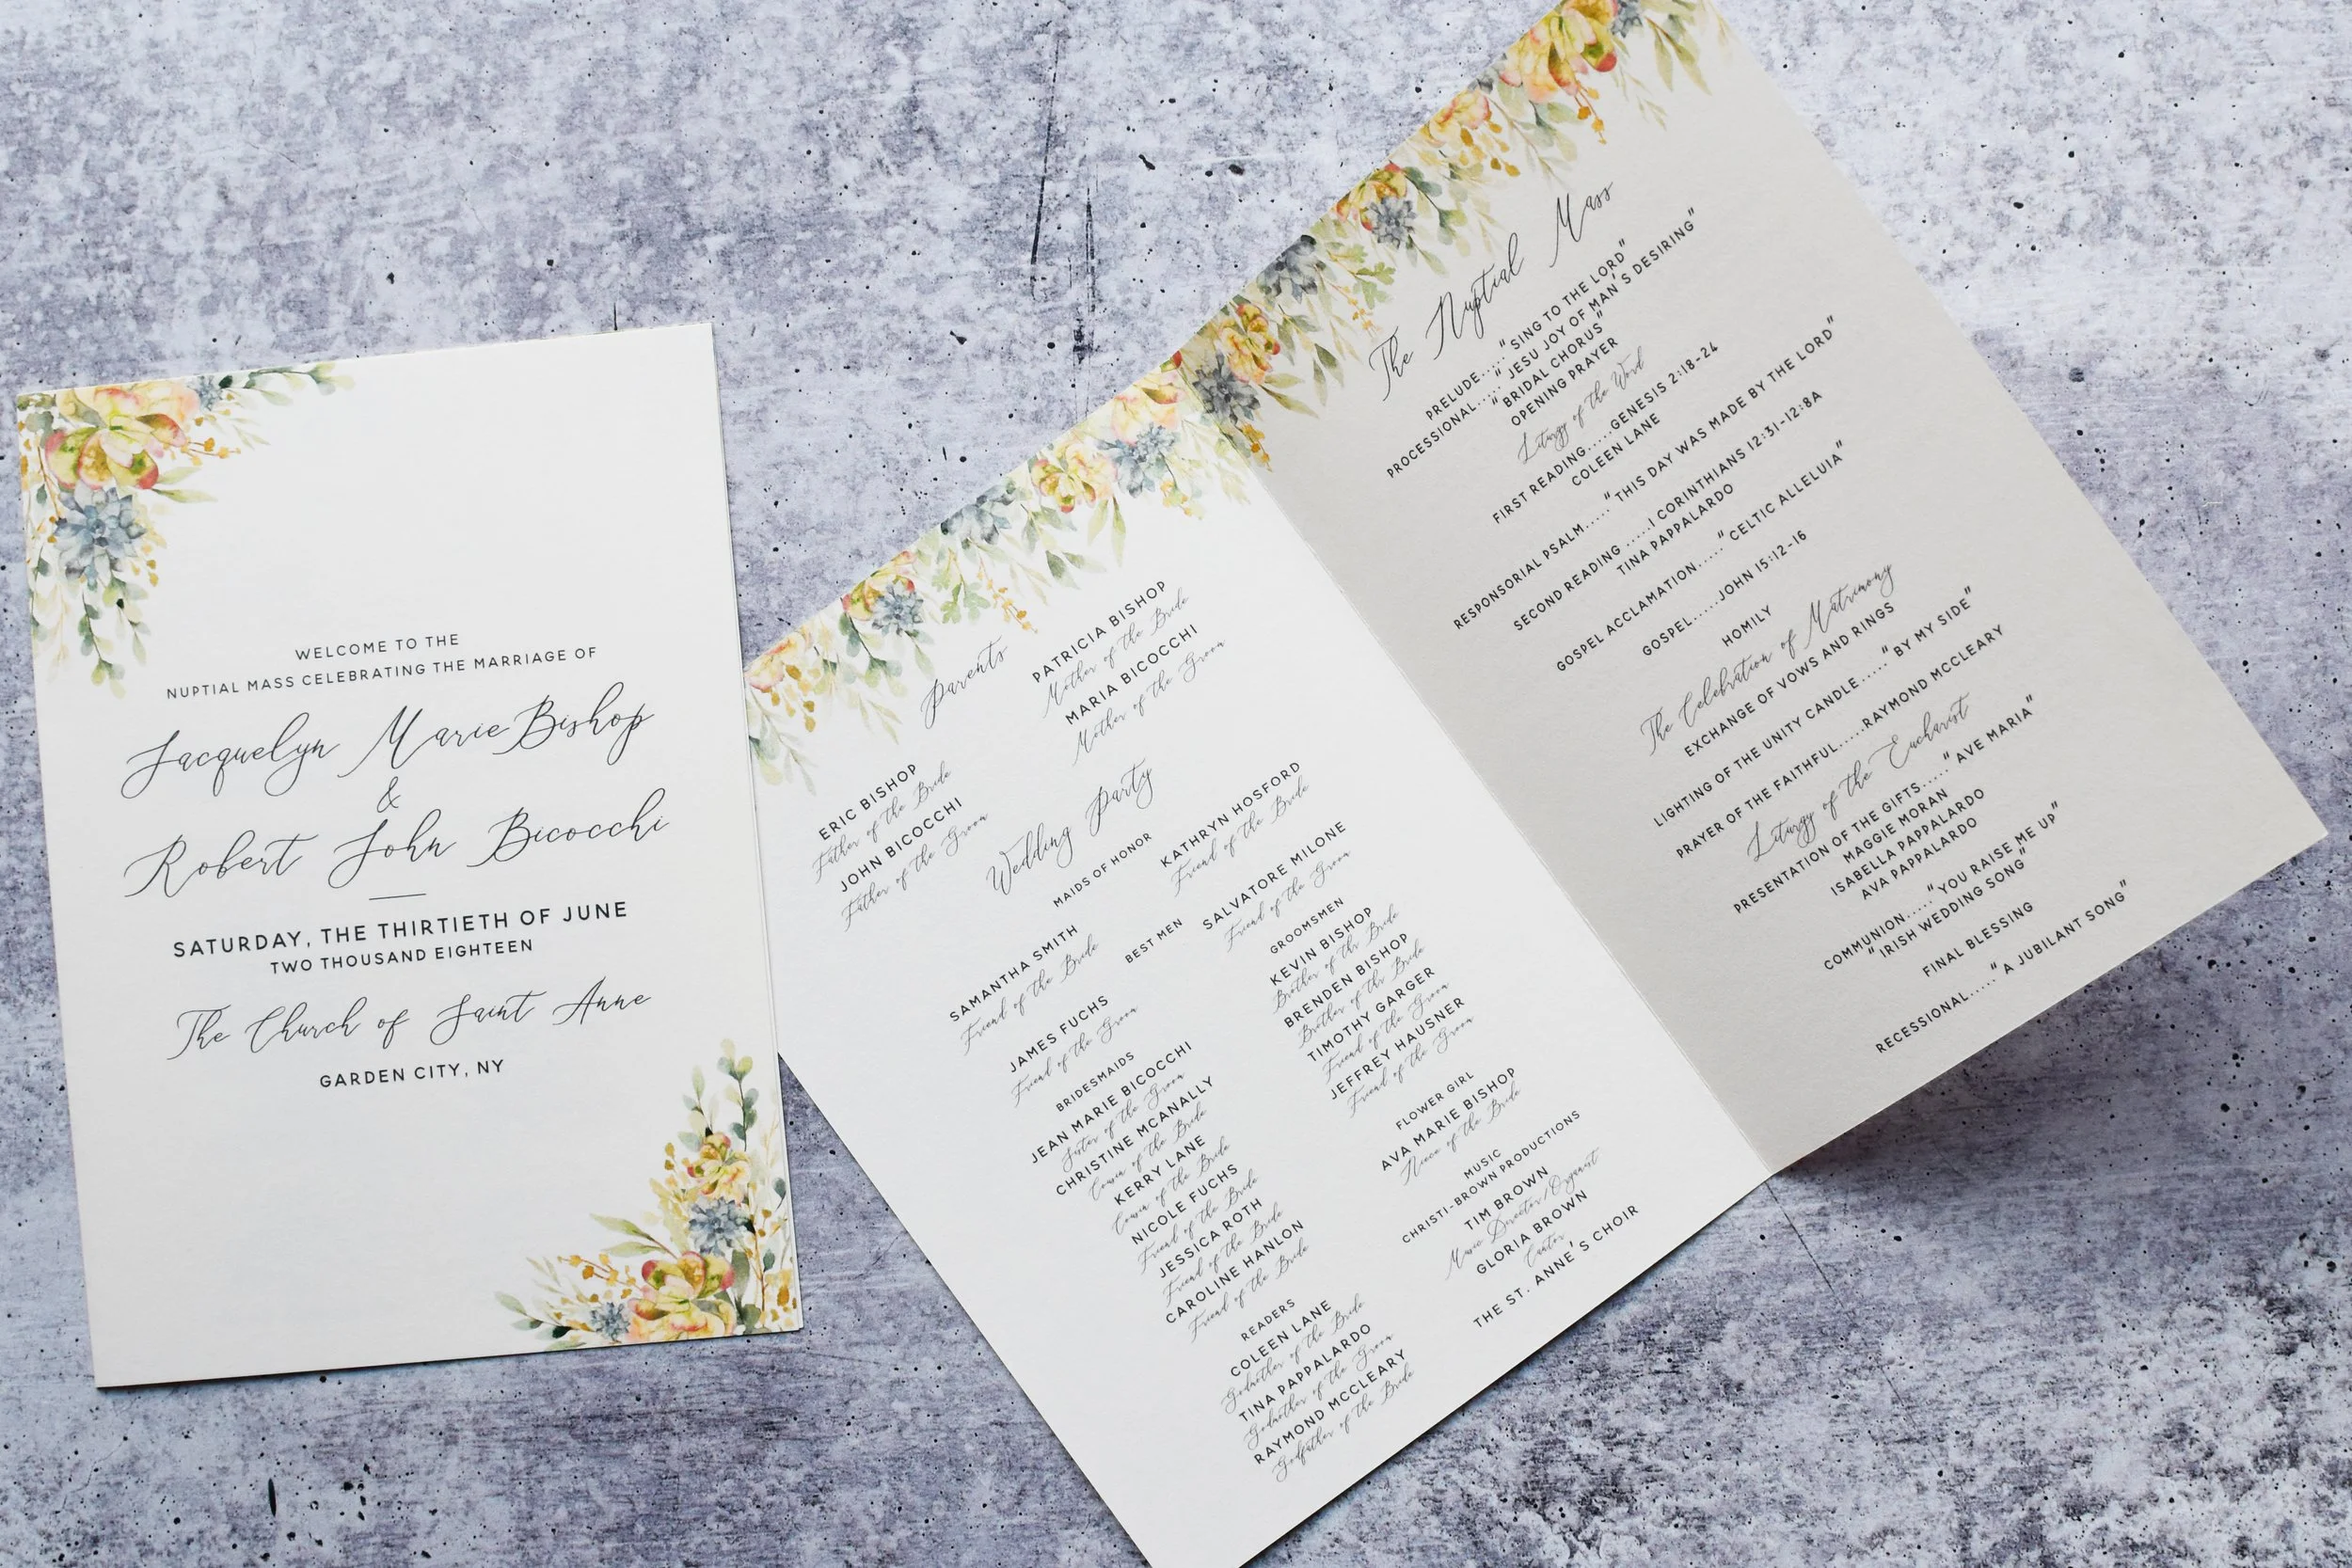 WELCOME TO THE
NUPTIAL MASS CELEBRATING THE MARRIAGE OF
Jacquelyn Marie Bishop
&
Robert John Bicocchi
SATURDAY, THE THIRTIETH OF JUNE
TWO THOUSAND EIGHTEEN
The Church of Saint Anne
GARDEN CITY, NY
Parents
ERIC BISHOP
Father of the Bride
JOHN BICOCCHI
Father of the Groom
PATRICIA BISHOP
Mother of the Bride
MARIA BICOCCHI
Mother of the Groom
Wedding Party
MAIDS OF HONOR
SAMANTHA SMITH
Friend of the Bride
KATHRYN HOSFORD
Friend of the Bride
BEST MEN
JAMES FUCHS
Friend of the Groom
SALVATORE MILONE
Friend of the Groom
BRIDESMAIDS
JEAN MARIE BICOCCHI
Sister of the Groom
CHRISTINE MCANALLY
Cousin of the Bride
KERRY LANE
Cousin of the Bride
NICOLE FUCHS
Friend of the Bride
JESSICA ROTH
Friend of the Bride
CAROLINE HANLON
Friend of the Bride
READERS
COLEEN LANE
Godmother of the Bride
TINA PAPPALARDO
Godmother of the Groom
RAYMOND MCCLEARY
Godfather of the Bride
GROOMSMEN
KEVIN BISHOP
Brother of the Bride
BRENDEN BISHOP
Brother of the Bride
TIMOTHY GARGER
Friend of the Groom
JEFFREY HAUSNER
Friend of the Groom
FLOWER GIRL
AVA MARIE BISHOP
Niece of the Bride
MUSIC
CHRISTI-BROWN PRODUCTIONS
TIM BROWN
Music Director/Organist
GLORIA BROWN
Cantor
THE ST. ANNE'S CHOIR
The Nuptial Mass
PRELUDE....."SING TO THE LORD"
PROCESSIONAL....."JESU JOY OF MAN'S DESIRING"
"BRIDAL CHORUS"
OPENING PRAYER
Liturgy of the Word
FIRST READING.....GENESIS 2:18-24
COLEEN LANE
RESPONSORIAL PSALM....."THIS DAY WAS MADE BY THE LORD"
SECOND READING .....1 CORINTHIANS 12:31-12:8A
TINA PAPPALARDO
GOSPEL ACCLAMATION....."CELTIC ALLELUIA"
GOSPEL.....JOHN 15:12-16
HOMILY
The Celebration of Matrimony
EXCHANGE OF VOWS AND RINGS
LIGHTING OF THE UNITY CANDLE ....."BY MY SIDE"
PRAYER OF THE FAITHFUL.....RAYMOND MCCLEARY
Liturgy of the Eucharist
PRESENTATION OF THE GIFTS....."AVE MARIA"
MAGGIE MORAN
ISABELLA PAPPALARDO
AVA PAPPALARDO
COMMUNION....."YOU RAISE ME UP"
"IRISH WEDDING SONG"
FINAL BLESSING
RECESSIONAL....."A JUBILANT SONG"